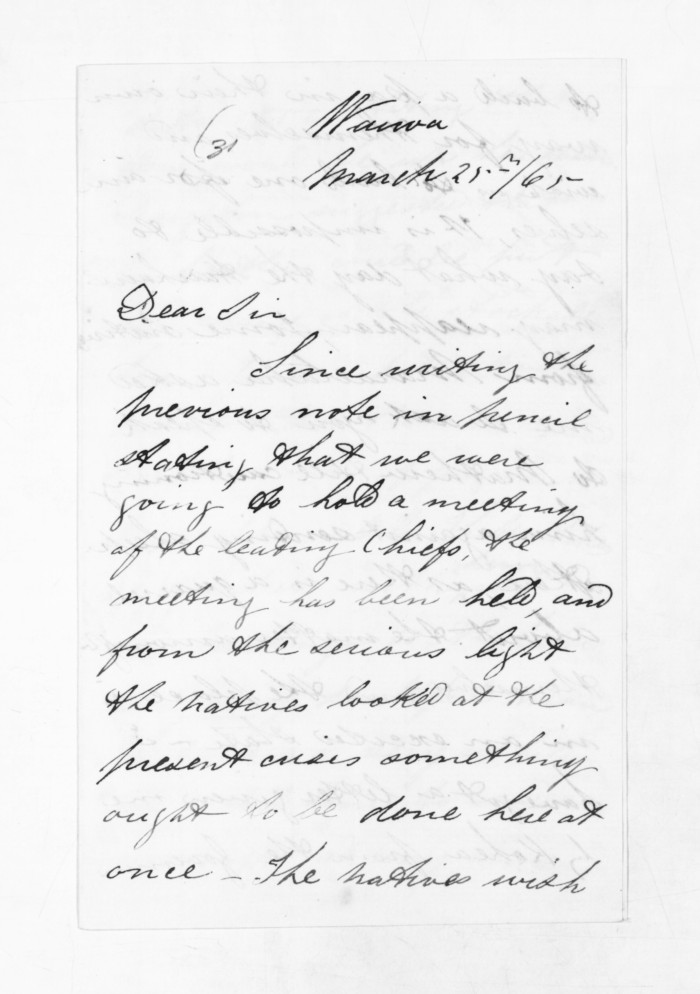 (31
Wairoa
March 25th/65
Dear Sir
Since writing the
previous note in pencil
stating that we were
going to hold a meeting
of the leading Chiefs, the
meeting has been held, and
from the serious light
the natives looked at the
present crisis something
ought to be done here at
once – The natives wish